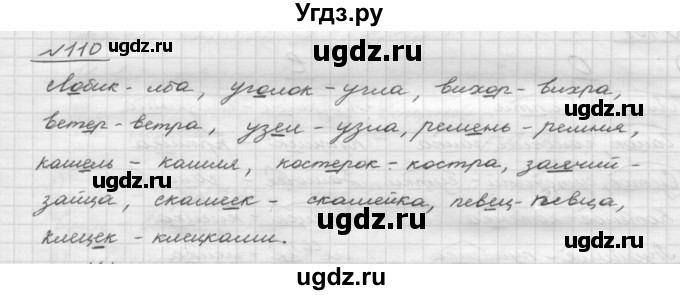 Угдз.ру
№110
ugdz.ru ugdz.ru
Лобик - лба, уголок - угла, вихор - вихра,
ugdz.ru
ветер - ветра, узел - узла, ремень - ремня,
ugdz.ru ugdz.ru
кашель - кашля, костерок - костра, заячий -
ugdz.ru
зайца, скамеек - скамейка, певец - певца,
ugdz.ru
клецек - клецками.
ugdz.ru ugdz.ru
ugdz.ru